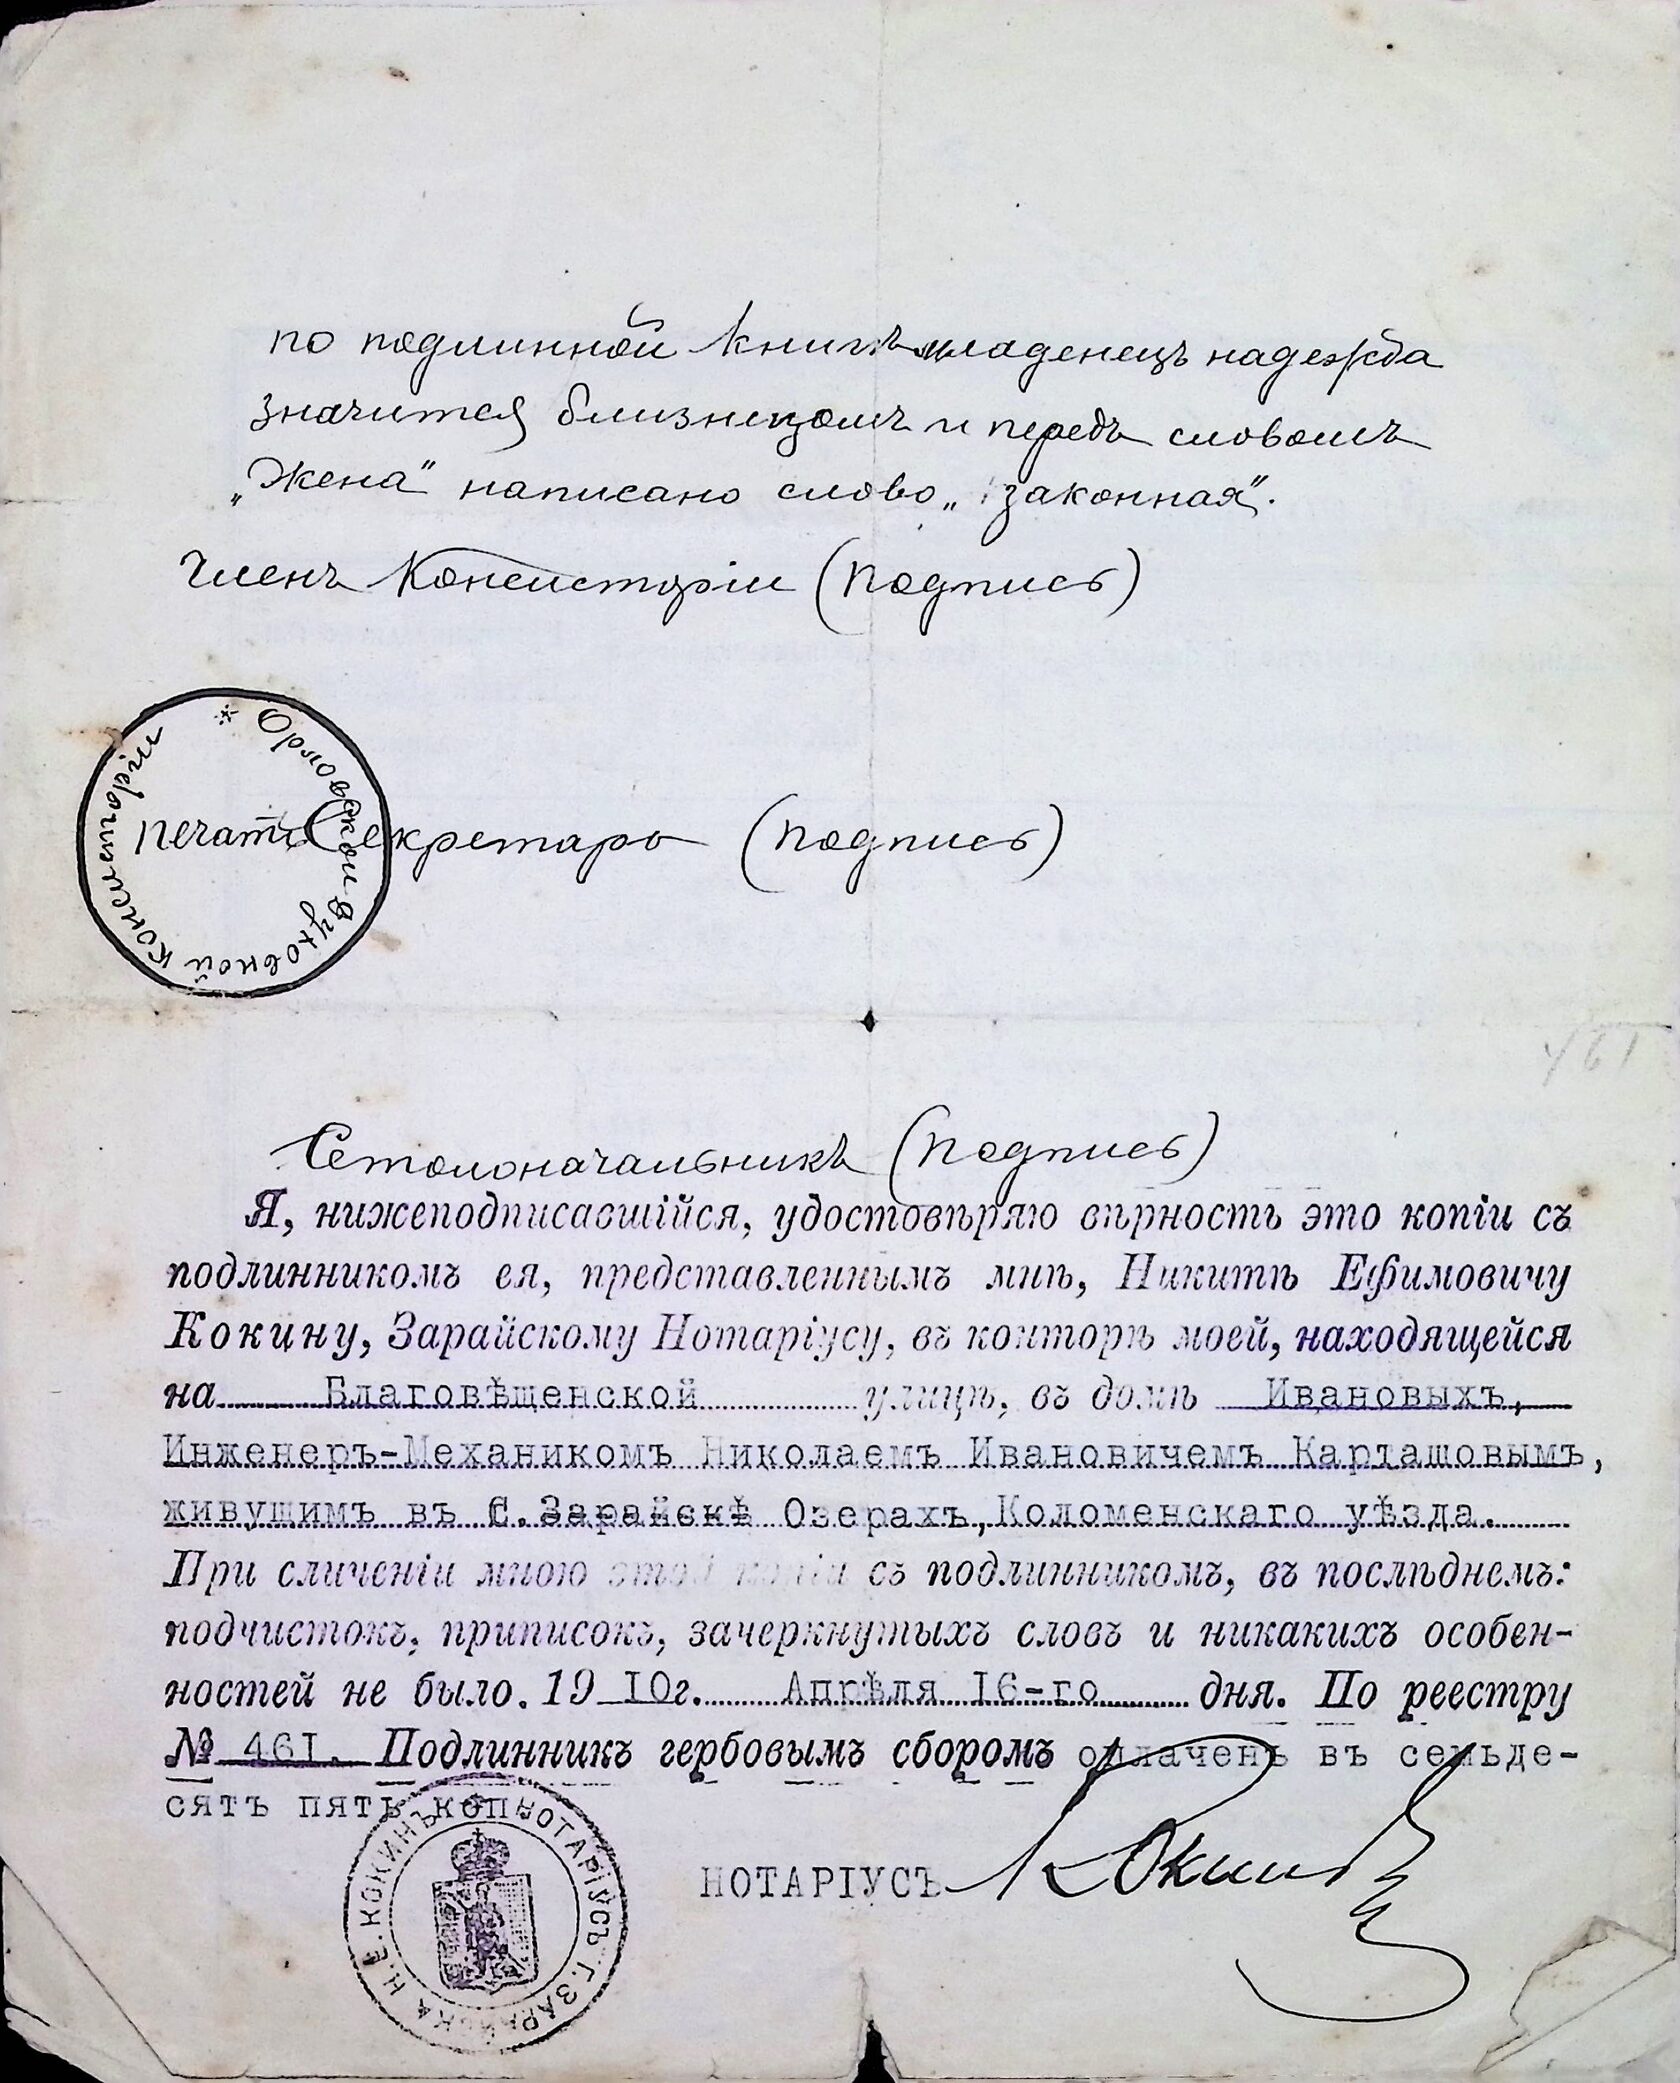 по подлинной книгѣ младенецъ надежда
значится близнецомъ и передъ словомъ
„Жена“ написано слово „законная“.
Членъ Консисторіи (подпись)
* Орловской Духовной Консисторіи
печать Секретарь (подпись)
461
Столоначальникъ (подпись)
Я, нижеподписавшійся, удостовѣряю вѣрность это копіи съ
подлинникомъ ея, представленнымъ мнѣ, Никитѣ Ефимовичу
Кокину, Зарайскому Нотаріусу, въ конторѣ моей, находящейся
на Благовѣщенской улицѣ, въ домѣ Ивановыхъ,
Инженеръ-Механикомъ Николаемъ Ивановичемъ Карташовымъ,
живущимъ въ С. Зарайскѣ Озерахъ, Коломенскаго уѣзда.
При сличеніи мною этой копіи съ подлинникомъ, въ послѣднемъ:
подчистокъ, приписокъ, зачеркнутыхъ словъ и никакихъ особен-
ностей не было. 19 I0г. Апрѣля I6-го дня. По реестру
№ 46I. Подлинникъ гербовымъ сборомъ оплаченъ въ семьде-
сятъ пять коп.
Н.Е. КОКИНЪ НОТАРІУСЪ Г. ЗАРАЙСКА
НОТАРІУСЪ Кокинъ